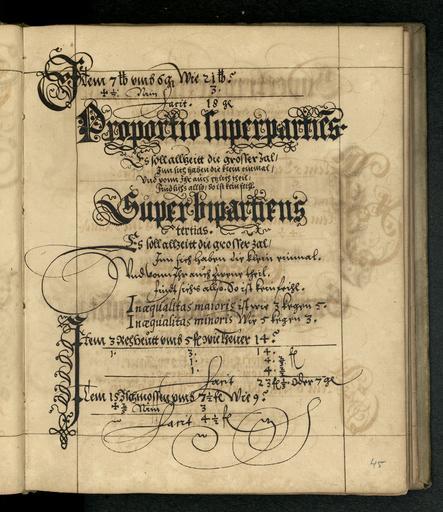 Item 7 lb umb 6 gl Wie 21 lb?
4 ½. Nim 3.
Facit. 18 gl
Proportio superpartiēs.
Es soll allzeitt die grösser zal/
Inn sich haben die klein einmal/
Und vonn Ihr auch etlich theil,
findt sichs allso, so ist kein feihl.
Superbipartiens
tertias.
Es soll allzeitt die grosser zal/
Inn sich haben die klein einmal.
Und vonn Ihr auch zween theil.
findt sichs also. So ist kein feihl.
Inæqualitas maioris ist wie 3 kegen 5.
Inæqualitas minoris Wie 5 kegen 3.
Item 3 umb 5 fl wie theuer 14?
1. 3. 14. fl
1. 4.
1. 4.
Facit 23 fl ⅓ oder 7 gl
Item 15 umb 7 ½ fl Wie 9?
Nim 3
Facit 4 ½ fl
45